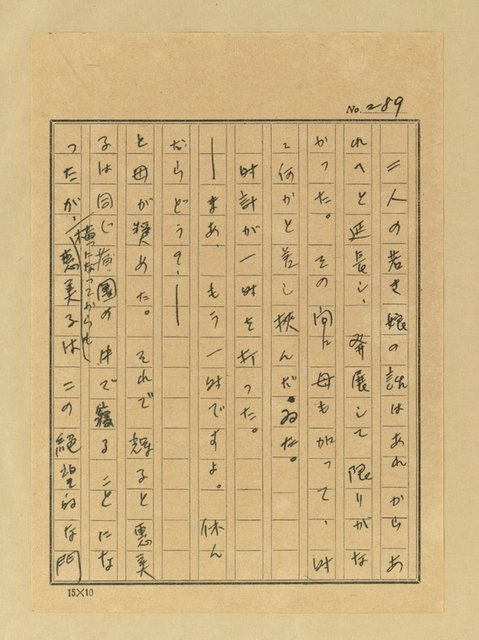 No. 289
二人の若き娘の話はあれからあ
れへと延長し、発展して限りがな
かった。その間に母も加って、時
々何かと差し挟んだ。
時計が一時を打った。
──まあ もう一時ですよ。休ん
だらどう？──
と母が奨めた。それで 子と恵美
子は同じ蒲団の中で寝ることにな
横になってからも
ったが、恵美子はこの絶望的な問
15×10